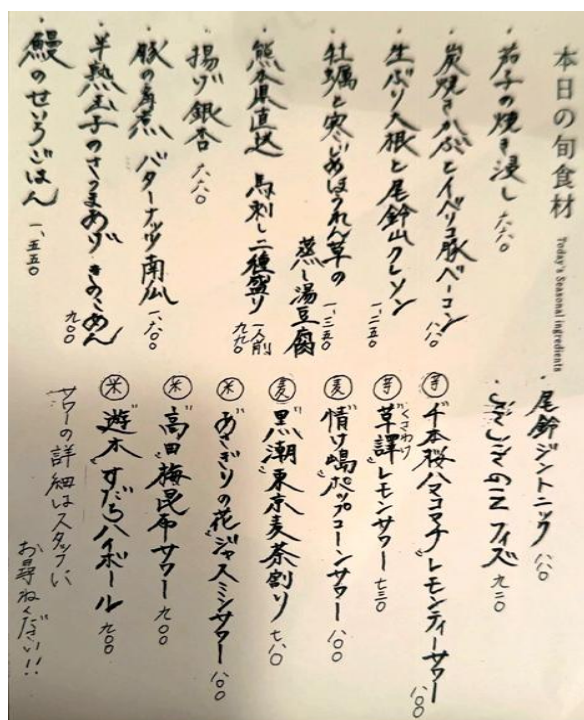 本日の旬食材
Today's Seasonal ingredients
・茄子の焼き浸し 六六〇
・炭焼きかぶとイベリコ豚ベーコン 八八〇
・生ぶり大根と尾鈴山クレソン 一、二五〇
・牡蠣と寒じめほうれん草の
蒸し湯豆腐 一、三五〇
・熊本県直送 馬刺し二種盛り 一人前 九九〇
・揚げ銀杏 六六〇
・豚の角煮 バターナッツ南瓜 一、六〇〇
・半熟玉子のさつまあげ きのこあん 九〇〇
・鰻のせいろごはん 一、五五〇
・尾鈴ジントニック 八八〇
フィズ 九二〇
芋 "千本桜ハマコマチ"レモンティーサワー 八〇〇
芋 "草譯"レモンサワー 七三〇
くさわけ
麦 "情け嶋"ポップコーンサワー 八〇〇
麦 "黒潮"東京麦茶割り 七八〇
米 "あさぎりの花"ジャスミンサワー 八〇〇
米 "高田"梅昆布サワー 九〇〇
米 "遊木"すだちハイボール 九〇〇
サワーの詳細はスタッフに
お尋ねください!!